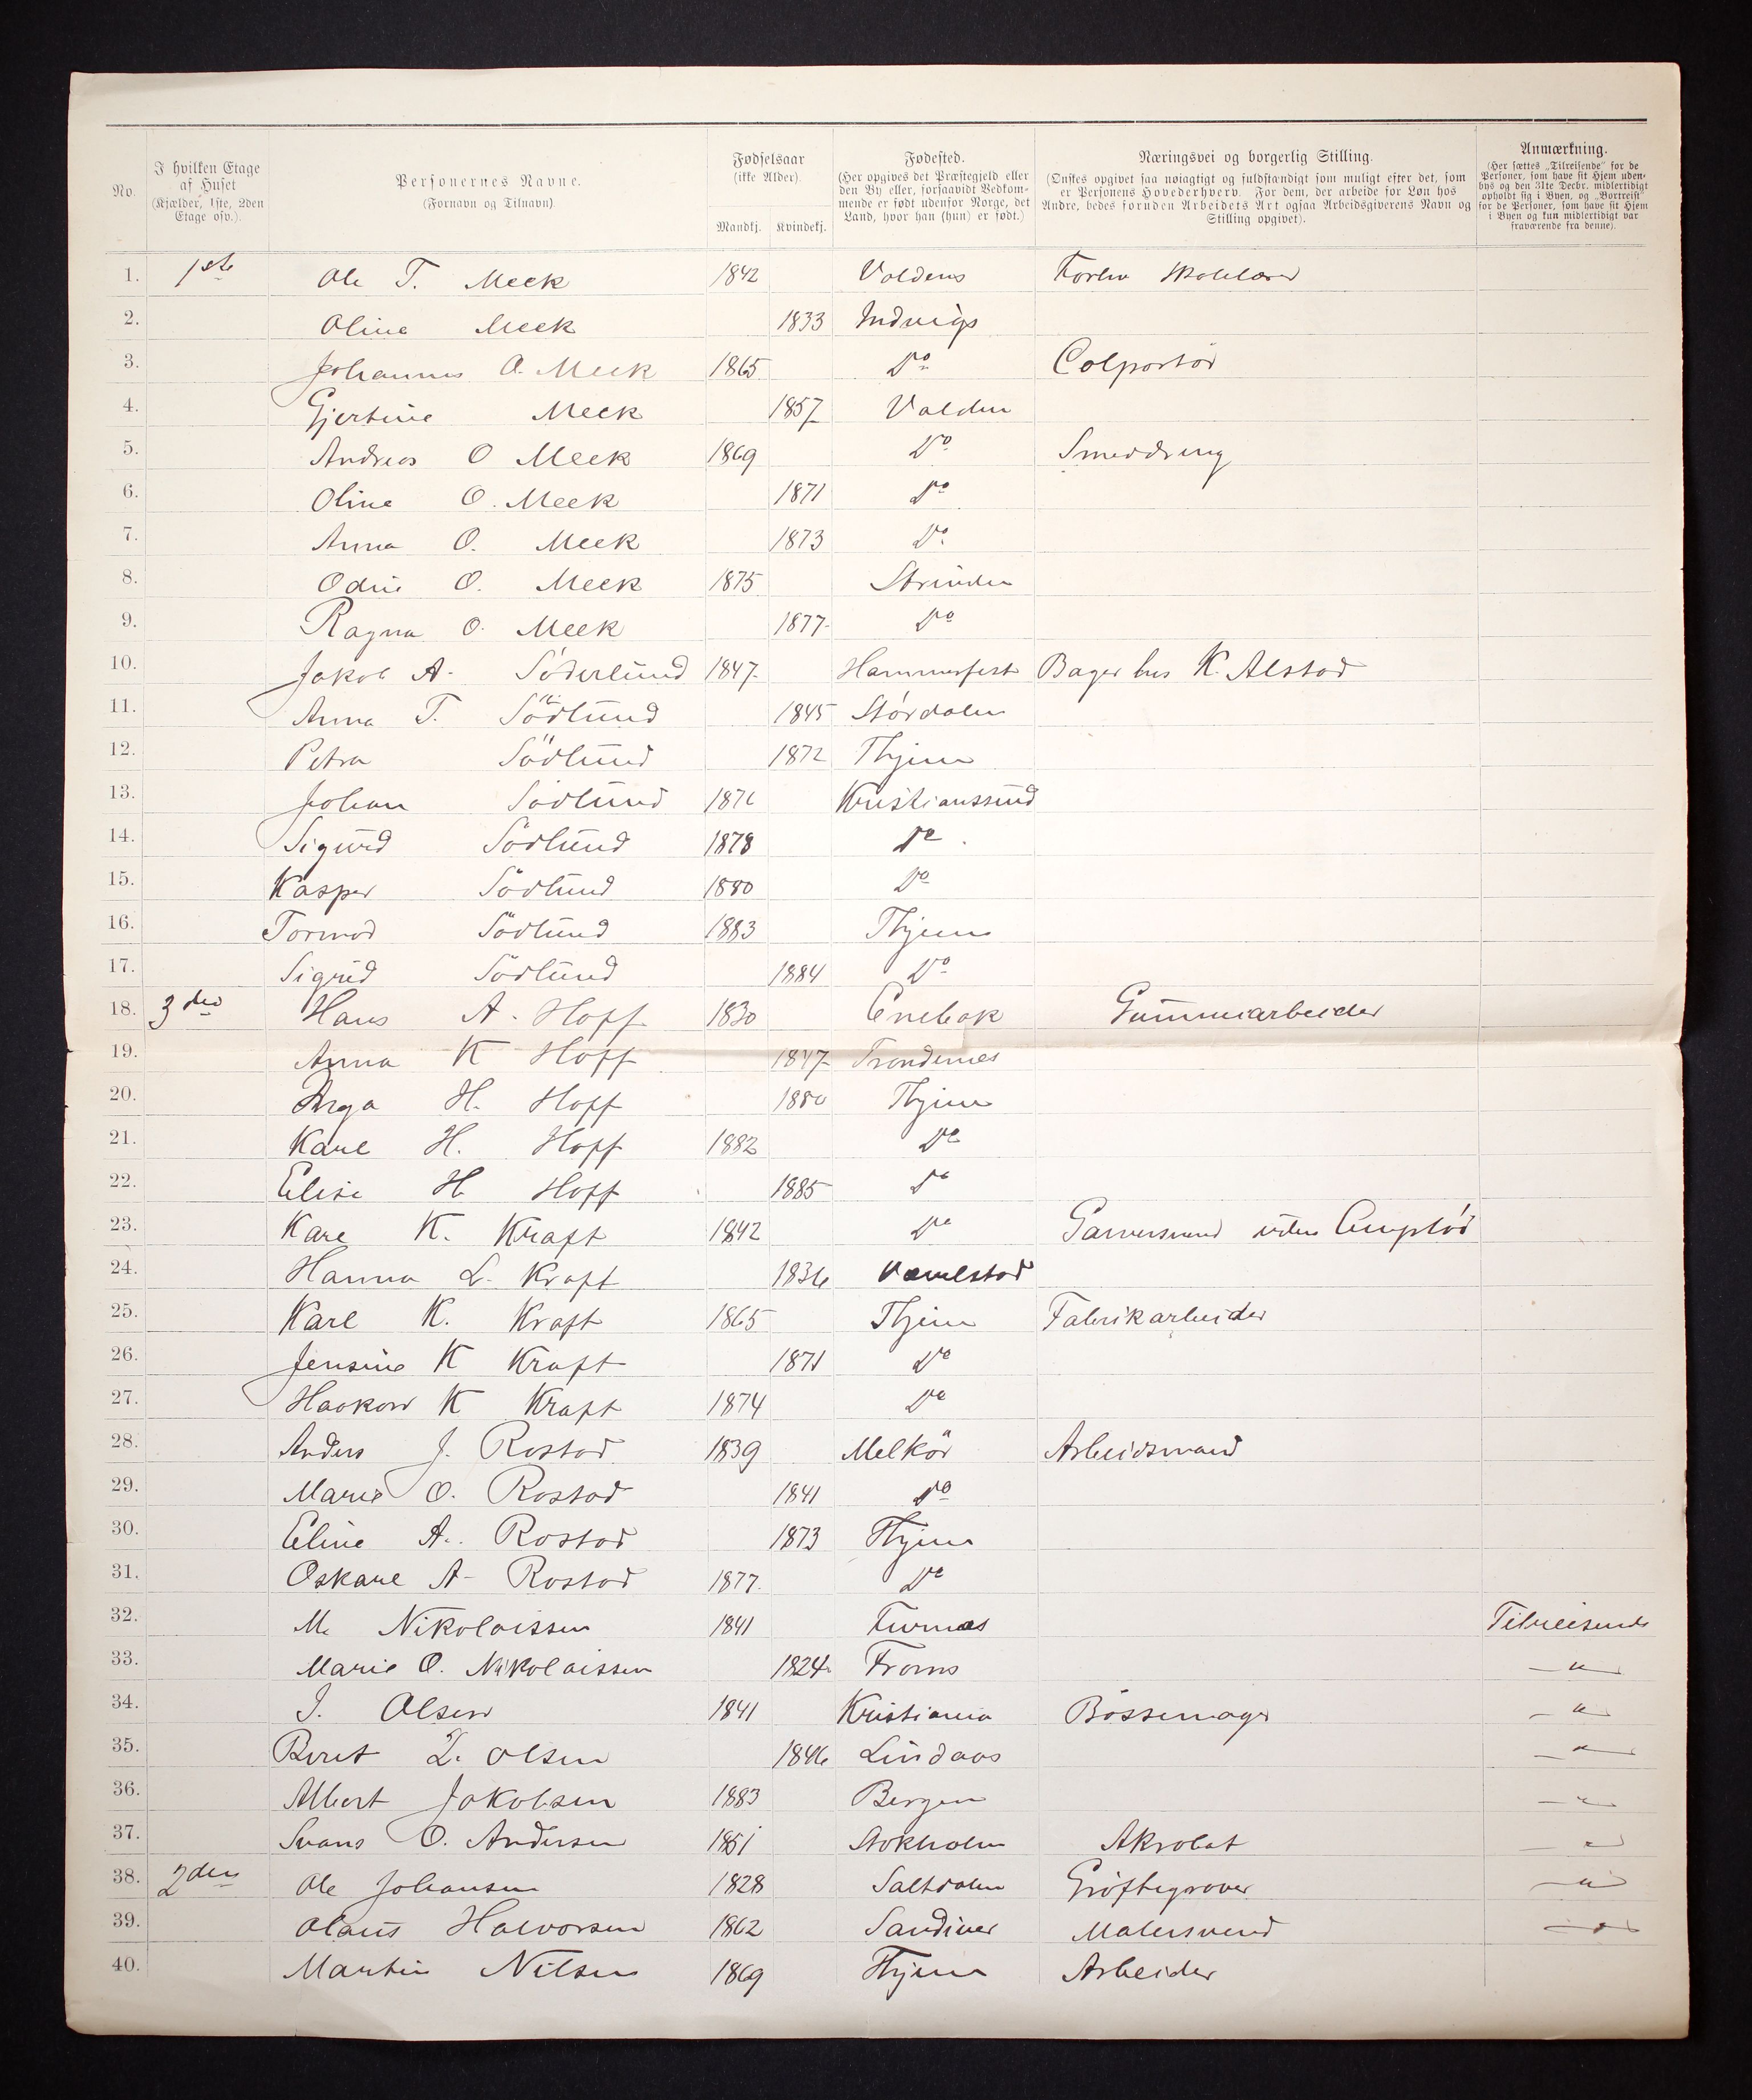 No.
I hvilken Etage af Huset (Kjælder, 1ste, 2den Etage osv.).
Personernes Navne. (Fornavn og Tilnavn)
Fødselsaar (ikke Alder). Mandkj. Kvindekj.
Fødested. (Her opgives det Præstegjeld eller den By eller, forsaavidt Vedkommende er født udenfor Norge, det Land, hvor han (hun) er født.)
Næringsvei og borgerlig Stilling. (Ønskes opgivet saa nøiagtigt og fuldstændigt som muligt efter det, som er Personens Hovederhverv. For dem, der arbeide for Løn hos Andre, bedes foruden Arbeidets Art ogsaa Arbeidsgiverens Navn og Stilling opgivet).
Anmærkning. (Her sættes „Tilreisende" for de Personer, som have sit Hjem udenbys og den 31te Decbr. midlertidigt opholdt sig i Byen, og „Bortreist" for de Personer, som have sit Hjem i Byen og kun midlertidigt var fraværende fra denne).
1. 1ste Ole T. Meek 1842 Voldens
2. Oline Meek 1833 Indvigs
3. Johannes O. Meek 1865 Do Colportør
4. Gjertine Meek 1857 Valden
5. Andreas O Meek 1869 Do Smeddreng
6. Oline O. Meek 1871 Do
7. Anna O. Meek 1873 Do
8. Odin O. Meek 1875 Strinden
9. Ragna O. Meek 1877 Do
10. Jakob A. Söderlund 1847 Hammerfest Bager hos K. Alstad
11. Anna T. Södlund 1845 Størdalen
12. Petra Södlund 1872 Thjem
13. Johan Södlund 1876 Kristianssund
14. Sigurd Södlund 1878 Do
15. Kasper Södlund 1880 Do
16. Tormod Södlund 1883 Thjem
17. Sigrid Södlund 1884 Do
18. 3die Hans A. Hoff 1830 Enebak Gummiarbeider
19. Anna K Hoff 1847 Trondenes
20. H. Hoff 1880 Thjem
21. Karl H. Hoff 1882 Do
22. Elise H Hoff 1885 Do
23. Karl K. Kraft 1842 Do Garversvend uden
24. Hanna L. Kraft 1836
25. Karl K. Kraft 1865 Thjem Fabrikarbeider
26. Jensine K Kraft 1871 Do
27. Haakon K Kraft 1874 Do
28. Anders J. Rostad 1839 Melkör Arbeidsmand
29. Marie O. Rostad 1841 Do
30. Eline A. Rostad 1873 Thjem
31. Oskar A. Rostad 1877 Do
32. M. Nikolaissen 1841 Tilreisende
33. Marie O. Nikolaissen 1824 Troms — " —
34. J. Olsen 1841 Kristiania Bøssemager — " —
35. Berit D. Olsen 1846 Lindaas — " —
36. Albert Jakobsen 1883 Bergen — " —
37. O. Andersen 1851 Stokholm Akrobat — " —
38. 2den Ole Johansen 1828 Saltdalen Grøftegraver — " —
39. Olaus Halvorsen 1862 Sandiver Malersvend — " —
40. Martin Nilsen 1869 Thjem Arbeider